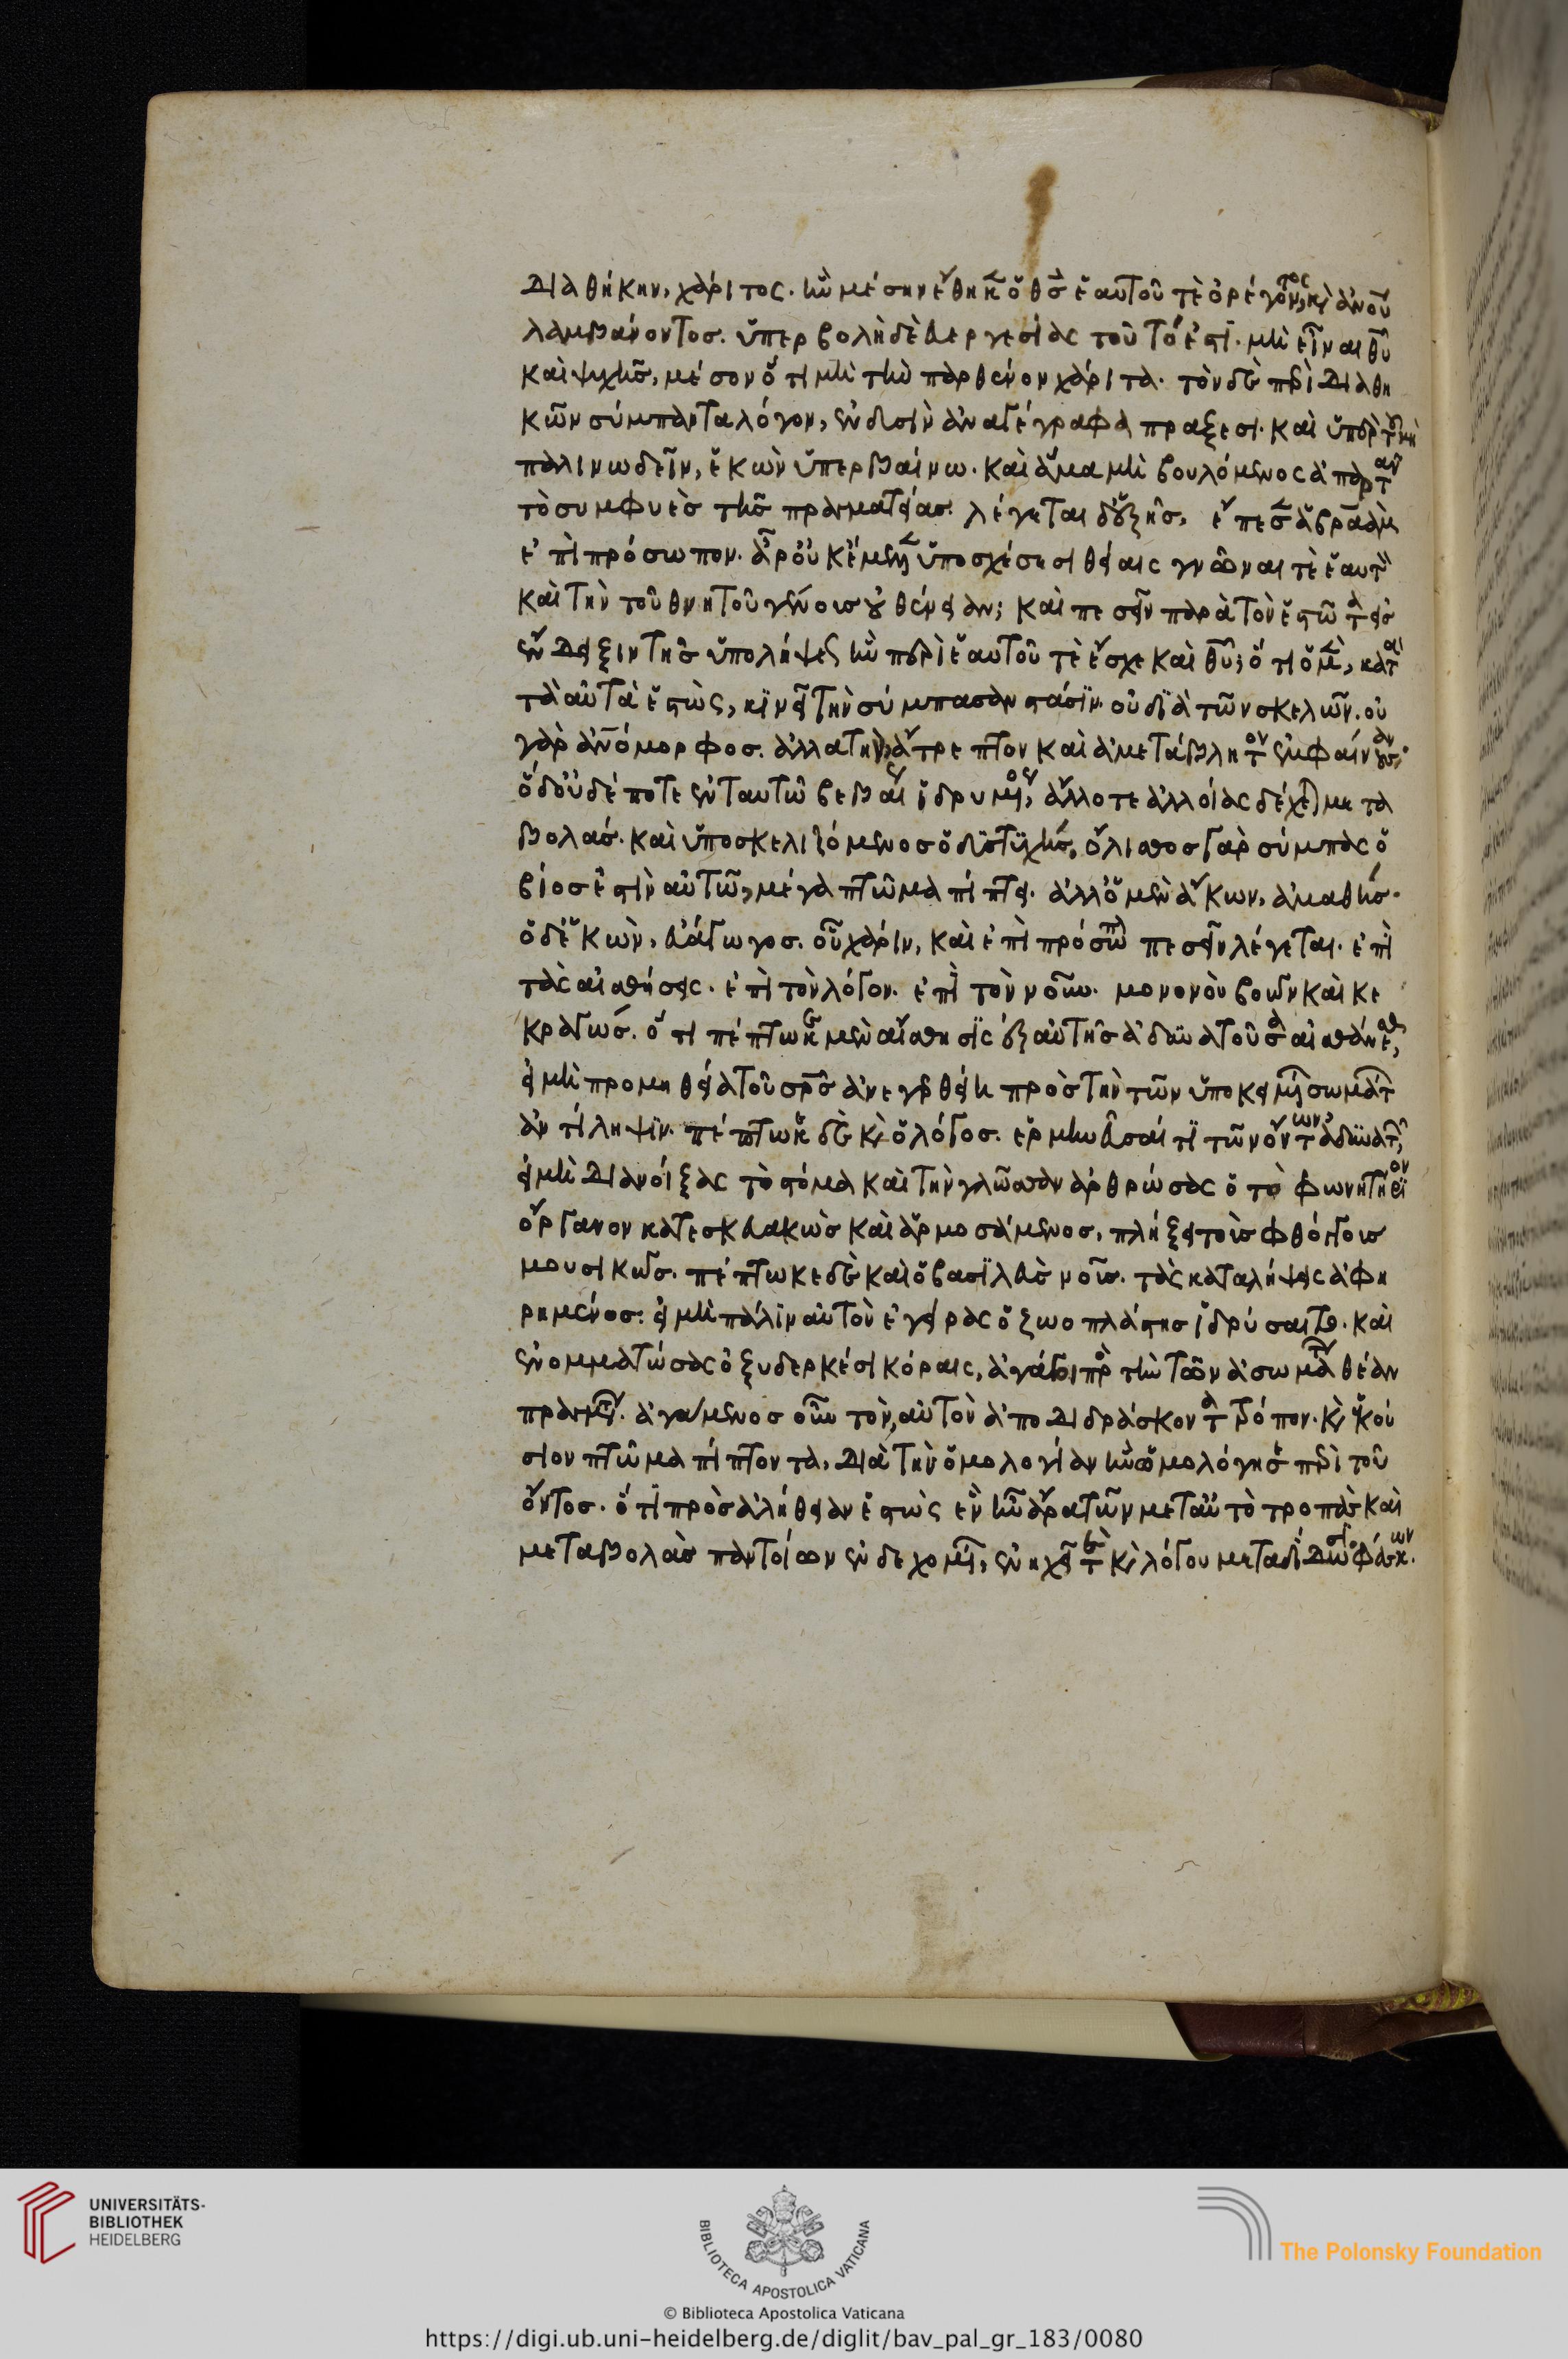 διαθήκην, χάριτος. ἣν μέσην ἔθηκεν ὁ θς ἑαυτοῦ τὲ ὀρέγοντος, κ ἀνου
λαμβάνοντος. ὑπερβολὴ δὲ ευεργεσίας τοῦτό ἐστι. μὴ εἶναι θυ
καὶ ψυχῆς, μέσον ὅτι μὴ τὴν παρθένον χάριτα. τὸν δὲ περὶ διαθη
κῶν σύμπαντα λόγον, ἐν δυσὶν ἀναγέγραφα πραξεσι. καὶ ὑπὲρ τοῦ μὴ
παλινωδεῖν, ἑκὼν ὑπερβαίνω. καὶ ἅμα μὴ βουλόμενος ἀπαρταν
τὸ συμφυὲς τῆς πραγματείας. λέγεται δ' ἑξῆς, ἔπεσεν ἀβραὰμ
ἐπὶ πρόσωπον. ἆρ' οὐκ ἔμελλεν ὑποσχέσησι θείαις γνῶναι τὲ ἑαυτὸν
καὶ τὴν τοῦ θνητοῦ γένους οὐθένειαν; καὶ πεσεῖν παρὰ τὸν ἑστῶτα εἰς
ἔνδειξιν τῆς ὑπολήψεως ἣν περὶ ἑαυτοῦ τὲ ἔσχε καὶ θυ; ὅτι ὁ μὲν, κατα
τὰ αὐτὰ ἑστὼς, κινεῖ τὴν σύμπασαν στάσιν. οὐ διὰ τῶν σκελῶν. οὐ
γὰρ ἀνόμορφος. ἀλλα τὴν, ἄτρεπτον καὶ ἀμετάβλητον ἐμφαίνουσαν.
ὁ δ' οὐδέποτε ἐν ταυτῶ βεβαίως ἱδρυμένος, ἄλλοτε ἀλλοίας δέχεται μετα
βολάς. καὶ ὑποσκελιζόμενος ὁ δυστυχής, ὄλισθος γὰρ σύμπας ὁ
βίος ἐστὶν αὐτῶ, μέγα πτῶμα πίπτει. ἀλλ' ὁ μὲν ἄκων, ἀμαθής.
ὁ δ' ἑκὼν, εὐάγωγος. οὗ χάριν, καὶ ἐπὶ πρόσωπον πεσεῖν λέγεται. ἐπὶ
τὰς αἰσθήσεις. ἐπὶ τὸν λόγον. ἐπὶ τὸν νοῦν. μονονοὺ βοῶν καὶ κε
κραγώς. ὅτι πέπτωκεν μὲν αἴσθησις ἐξ αὑτῆς ἀδυνατοῦσα αἰσθάνεσθαι,
εἰ μὴ προμηθεία τοῦ σρς ἀνεγερθείη πρὸς τὴν τῶν ὑποκειμένων σωμάτων
ἀντίληψιν. πέπτωκε δὲ κ ὁ λόγος. ἑρμηνεῦσαί τι τῶν ὄντων ἀδυνατῶν,
εἰ μὴ διανοίξας τὸ στόμα καὶ τὴν γλῶσσαν ἀρθρώσας ὁ τὸ φωνητήριον
ὄργανον κατεσκευακὼς καὶ ἁρμοσάμενος, πλήξει τοῖς φθόγγοις
μουσικῶς. πέπτωκε δὲ καὶ ὁ βασιλεὺς νοῦς. τὰς καταλήψεις ἀφη
ρημένος: εἰ μὴ πάλιν αὐτὸν ἐγείρας ὁ ζωοπλάστης ἱδρύσαιτο. καὶ
ἐνομματώσας ὀξυδερκέσι κόραις, ἀγάγοι πρὸς τὴν τῶν ἀσωμάτων θέαν
πραγμάτων. ἀγάμενος οὖν τὸν, αὐτὸν ἀποδιδράσκοντα τρόπον. κ ἑκού
σιον πτῶμα πίπτοντα, διὰ τὴν ὁμολογίαν ἣν ὡμολόγησε περὶ τοῦ
ὄντος. ὅτι πρὸς ἀλήθειαν ἑστὼς εἷς ἦν ἄρα τῶν μετ' αὐτὸ τροπὰς καὶ
μεταβολὰς παντοίων ἐνδεχομένων, ἐνηχεῖ τὲ κ λόγου μεταδίδωσι φάσκων.
UNIVERSITÄTS-
BIBLIOTHEK
HEIDELBERG
BIBLIOTECA APOSTOLICA VATICANA
The Polonsky Foundation
© Biblioteca Apostolica Vaticana
https://digi.ub.uni-heidelberg.de/diglit/bav_pal_gr_183/0080